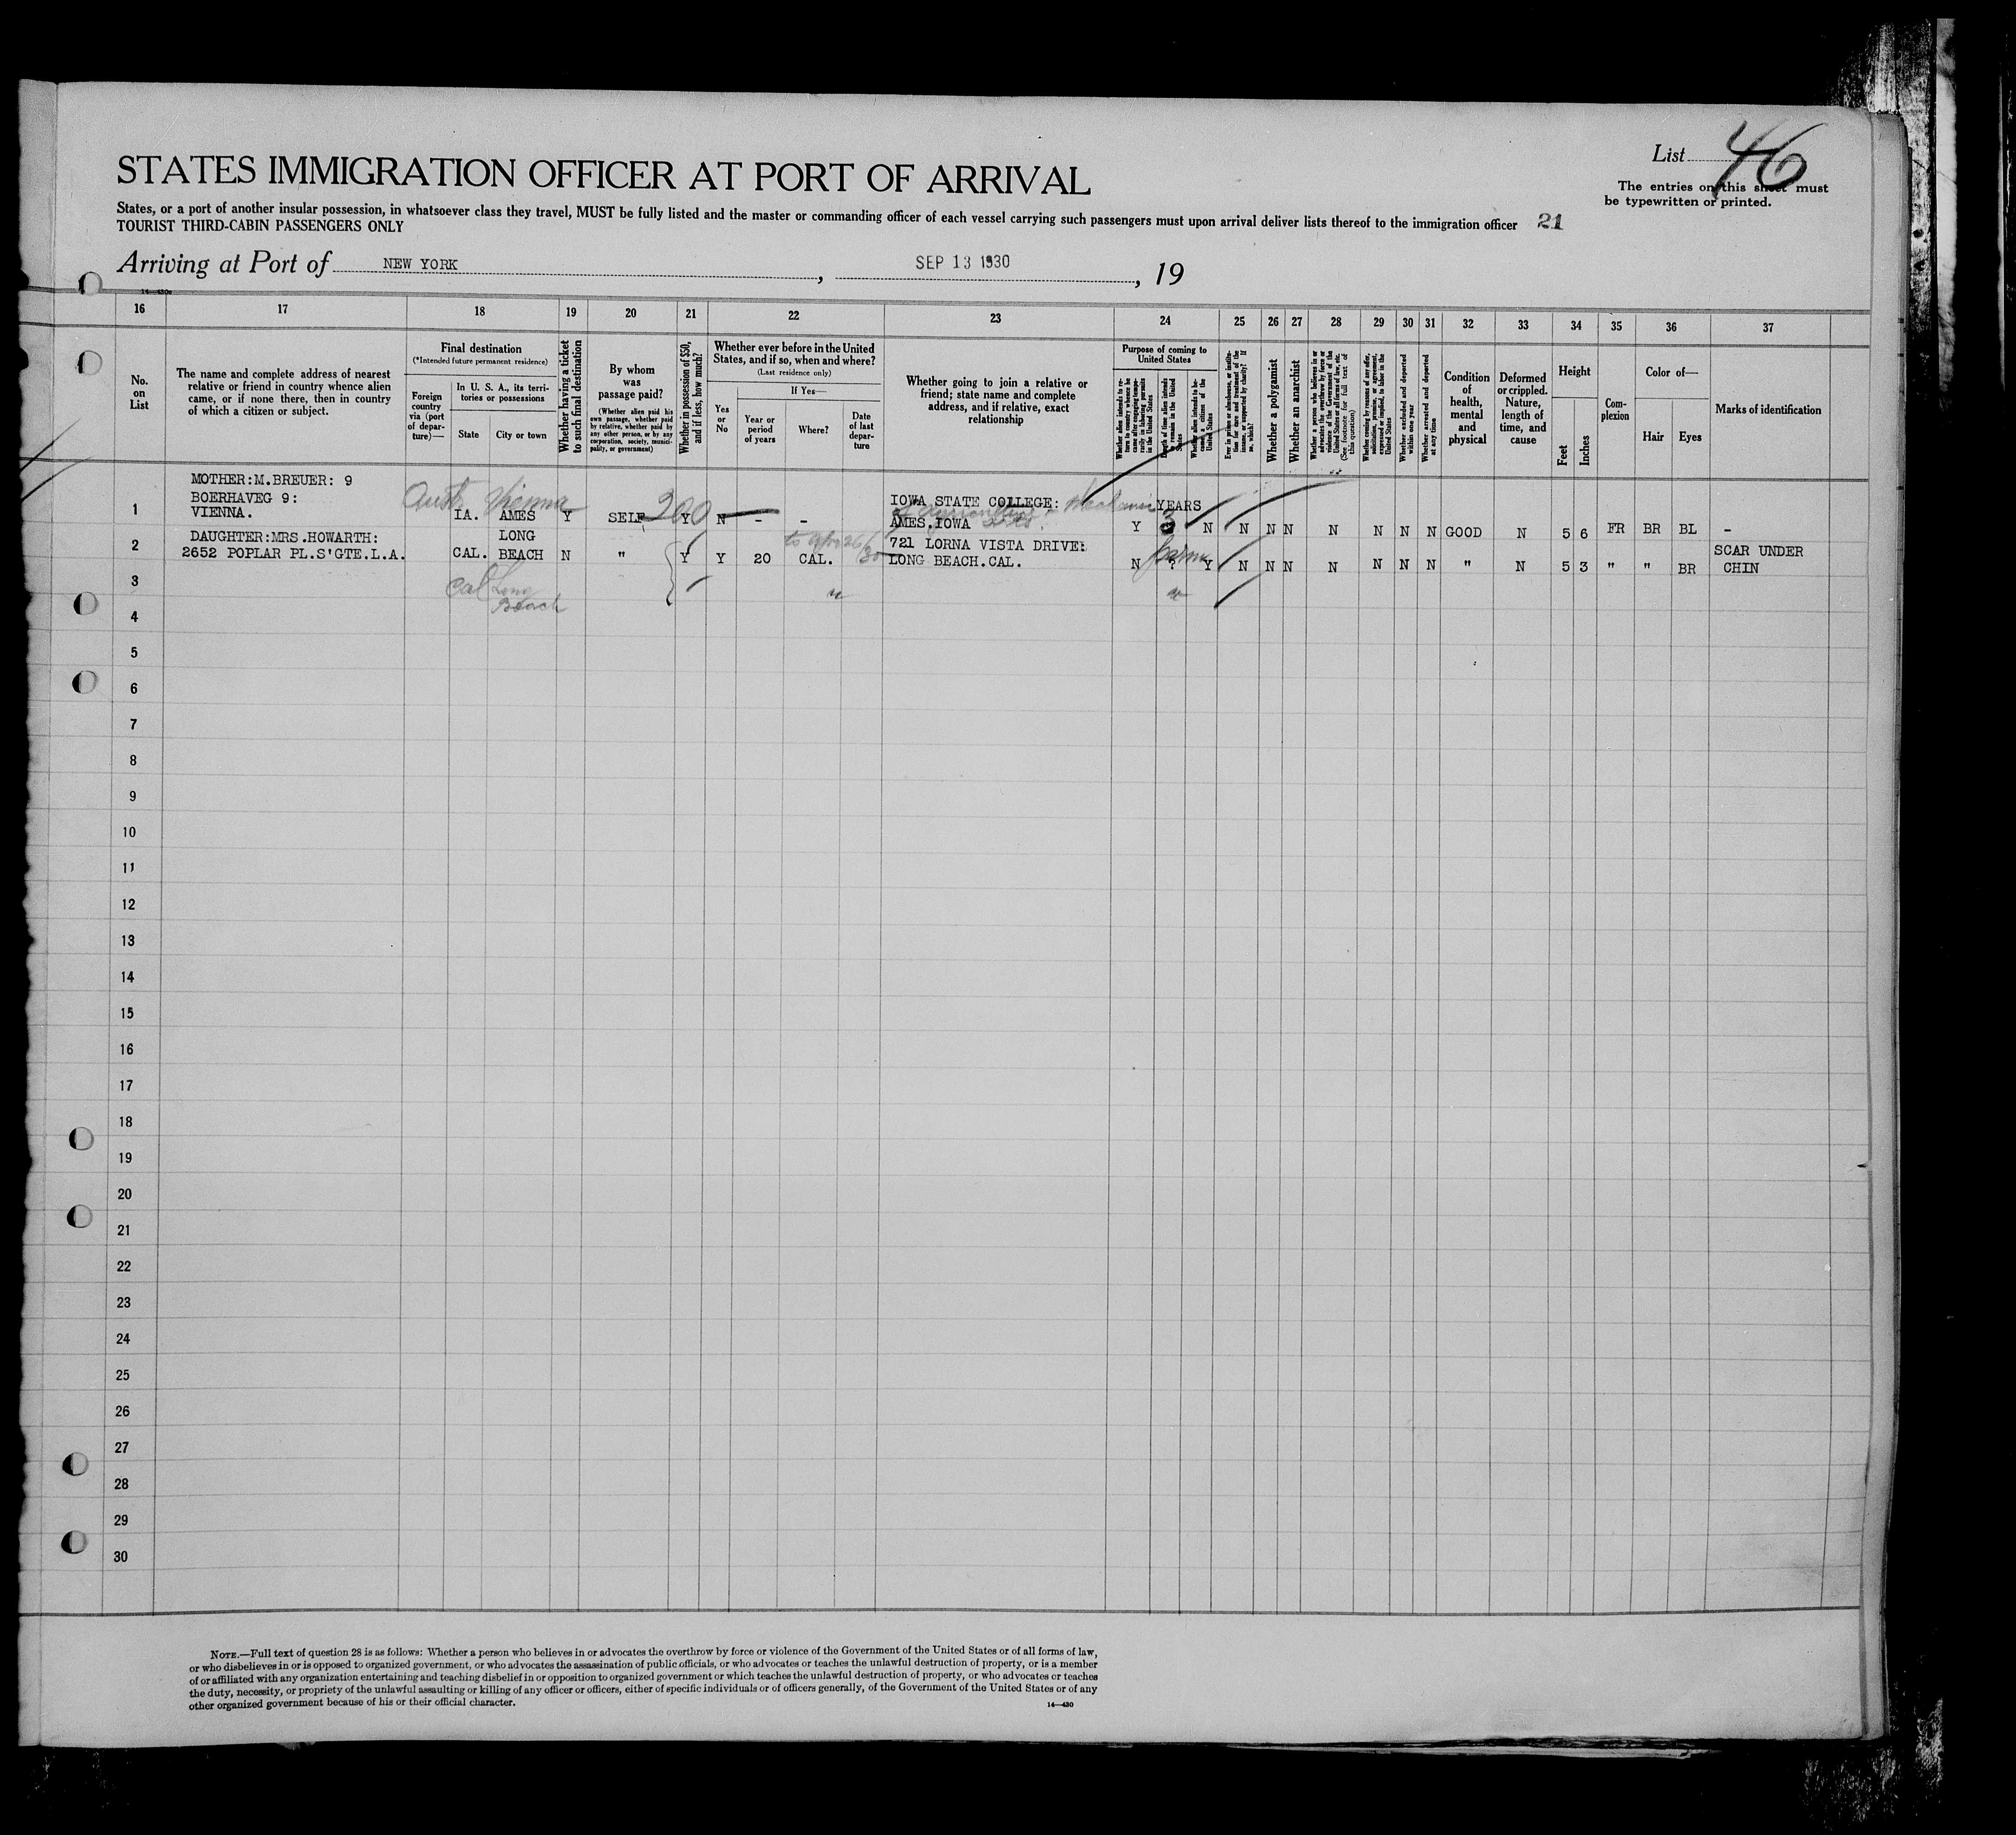 STATES IMMIGRATION OFFICER AT PORT OF ARRIVAL
List 46
The entries on this sheet must
be typewritten or printed.
States, or a port of another insular possession, in whatsoever class they travel, MUST be fully listed and the master or commanding officer of each vessel carrying such passengers must upon arrival deliver lists thereof to the immigration officer 21
TOURIST THIRD-CABIN PASSENGERS ONLY
Arriving at Port of NEW YORK, SEP 13 1930, 19
14—430
16 17 18 19 20 21 22 23 24 25 26 27 28 29 30 31 32 33 34 35 36 37
No.
on
List
The name and complete address of nearest
relative or friend in country whence alien
came, or if none there, then in country
of which a citizen or subject.
Final destination
(*Intended future permanent residence)
Foreign
country
via (port
of depar-
ture)—
In U. S. A., its terri-
tories or possessions
State
City or town
Whether having a ticket
to such final destination
By whom
was
passage paid?
(Whether alien paid his
own passage, whether paid
by relative, whether paid by
any other person, or by any
corporation, society, munici-
pality, or government)
Whether in possession of $50,
and if less, how much?
Whether ever before in the United
States, and if so, when and where?
(Last residence only)
Yes
or
No
If Yes—
Year or
period
of years
Where?
Date
of last
depar-
ture
Whether going to join a relative or
friend; state name and complete
address, and if relative, exact
relationship
Purpose of coming to
United States
Whether alien intends to re-
turn to country whence he
came after engaging tempo-
rarily in laboring pursuits
in the United States
Length of time alien intends
to remain in the United
States
Whether alien intends to be-
come a citizen of the
United States
Ever in prison or almshouse, or institu-
tion for care and treatment of the
insane, or supported by charity? If
so, which?
Whether a polygamist
Whether an anarchist
Whether a person who believes in or
advocates the overthrow by force or
violence of the Government of the
United States or all forms of law, etc.
(See footnote for full text of
this question)
Whether coming by reason of any offer,
solicitation, promise, or agreement,
expressed or implied, to labor in the
United States
Whether excluded and deported
within one year
Whether arrested and deported
at any time
Condition
of
health,
mental
and
physical
Deformed
or crippled.
Nature,
length of
time, and
cause
Height
Feet
Inches
Com-
plexion
Color of—
Hair
Eyes
Marks of identification
MOTHER:M.BREUER: 9
BOERHAVEG 9:
VIENNA.
Aust. Vienna
1 IA. AMES Y SELF 200 Y N - -
IOWA STATE COLLEGE:
AMES.IOWA
YEARS
Y 3 N N N N N N N N GOOD N 5 6 FR BR BL -
DAUGHTER:MRS.HOWARTH:
2 2652 POPLAR PL.S'GTE.L.A.
LONG
CAL. BEACH N " Y Y 20 CAL. 30
721 LORNA VISTA DRIVE:
LONG BEACH.CAL.
N ? Y N N N N N N N " N 5 3 " " BR
SCAR UNDER
CHIN
3 Cal Long
Beach
4
5
6
7
8
9
10
11
12
13
14
15
16
17
18
19
20
21
22
23
24
25
26
27
28
29
30
NOTE.—Full text of question 28 is as follows: Whether a person who believes in or advocates the overthrow by force or violence of the Government of the United States or of all forms of law,
or who disbelieves in or is opposed to organized government, or who advocates the assassination of public officials, or who advocates or teaches the unlawful destruction of property, or is a member
of or affiliated with any organization entertaining and teaching disbelief in or opposition to organized government or which teaches the unlawful destruction of property, or who advocates or teaches
the duty, necessity, or propriety of the unlawful assaulting or killing of any officer or officers, either of specific individuals or of officers generally, of the Government of the United States or of any
other organized government because of his or their official character.
14—430